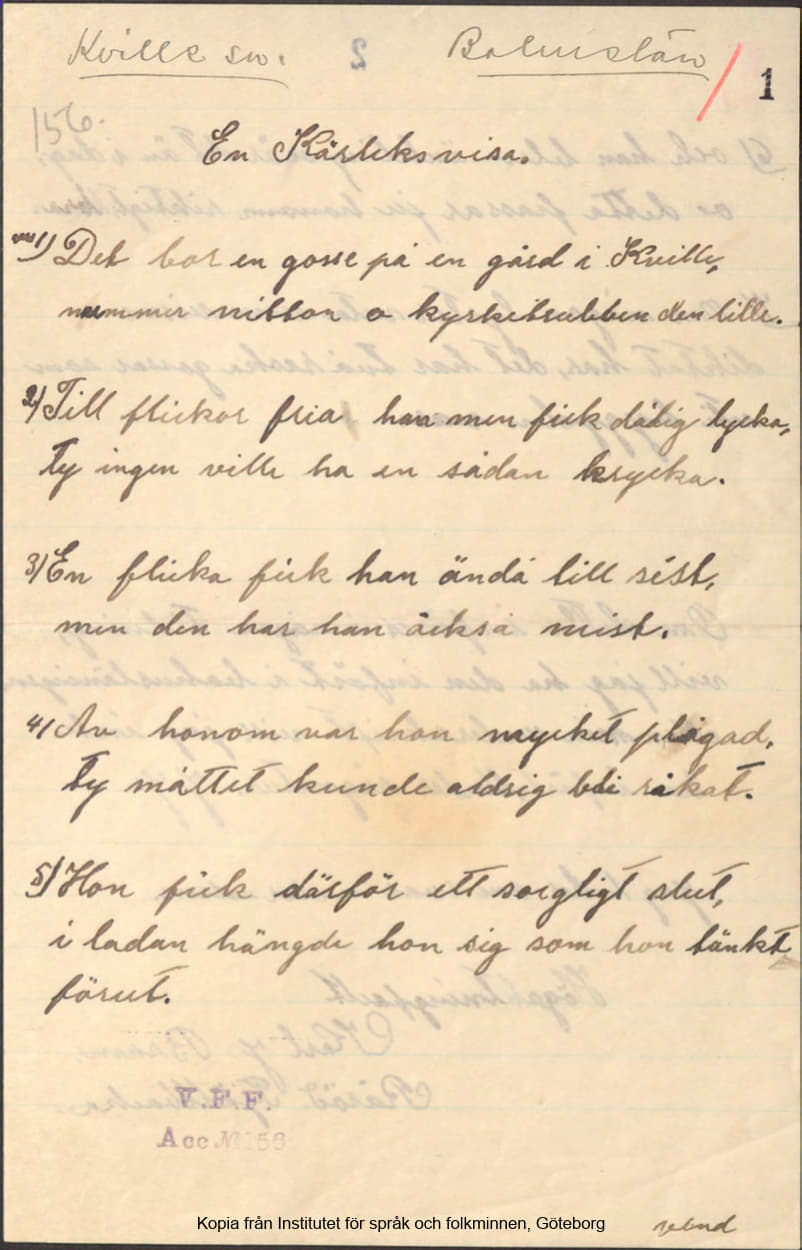 Kville sn. 2 Bohuslän 1
156.
En Kärleksvisa.
1) Det bor en gosse på en gård i Kville,
nummer nitton o kyrketubben den lille.
2) Till flickor fria han men fick dålig lycka,
ty ingen ville ha en sådan krycka.
3) En flicka fick han ändå till sist,
men den har han också mist.
4) Av honom var hon mycket plågad,
ty måttet kunde aldrig bli råkat.
5) Hon fick därför ett sorgligt slut,
i ladan hängde hon sig som hon tänkt
förut.
V.F.F.
Acc № 156
Kopia från Institutet för språk och folkminnen, Göteborg
vänd